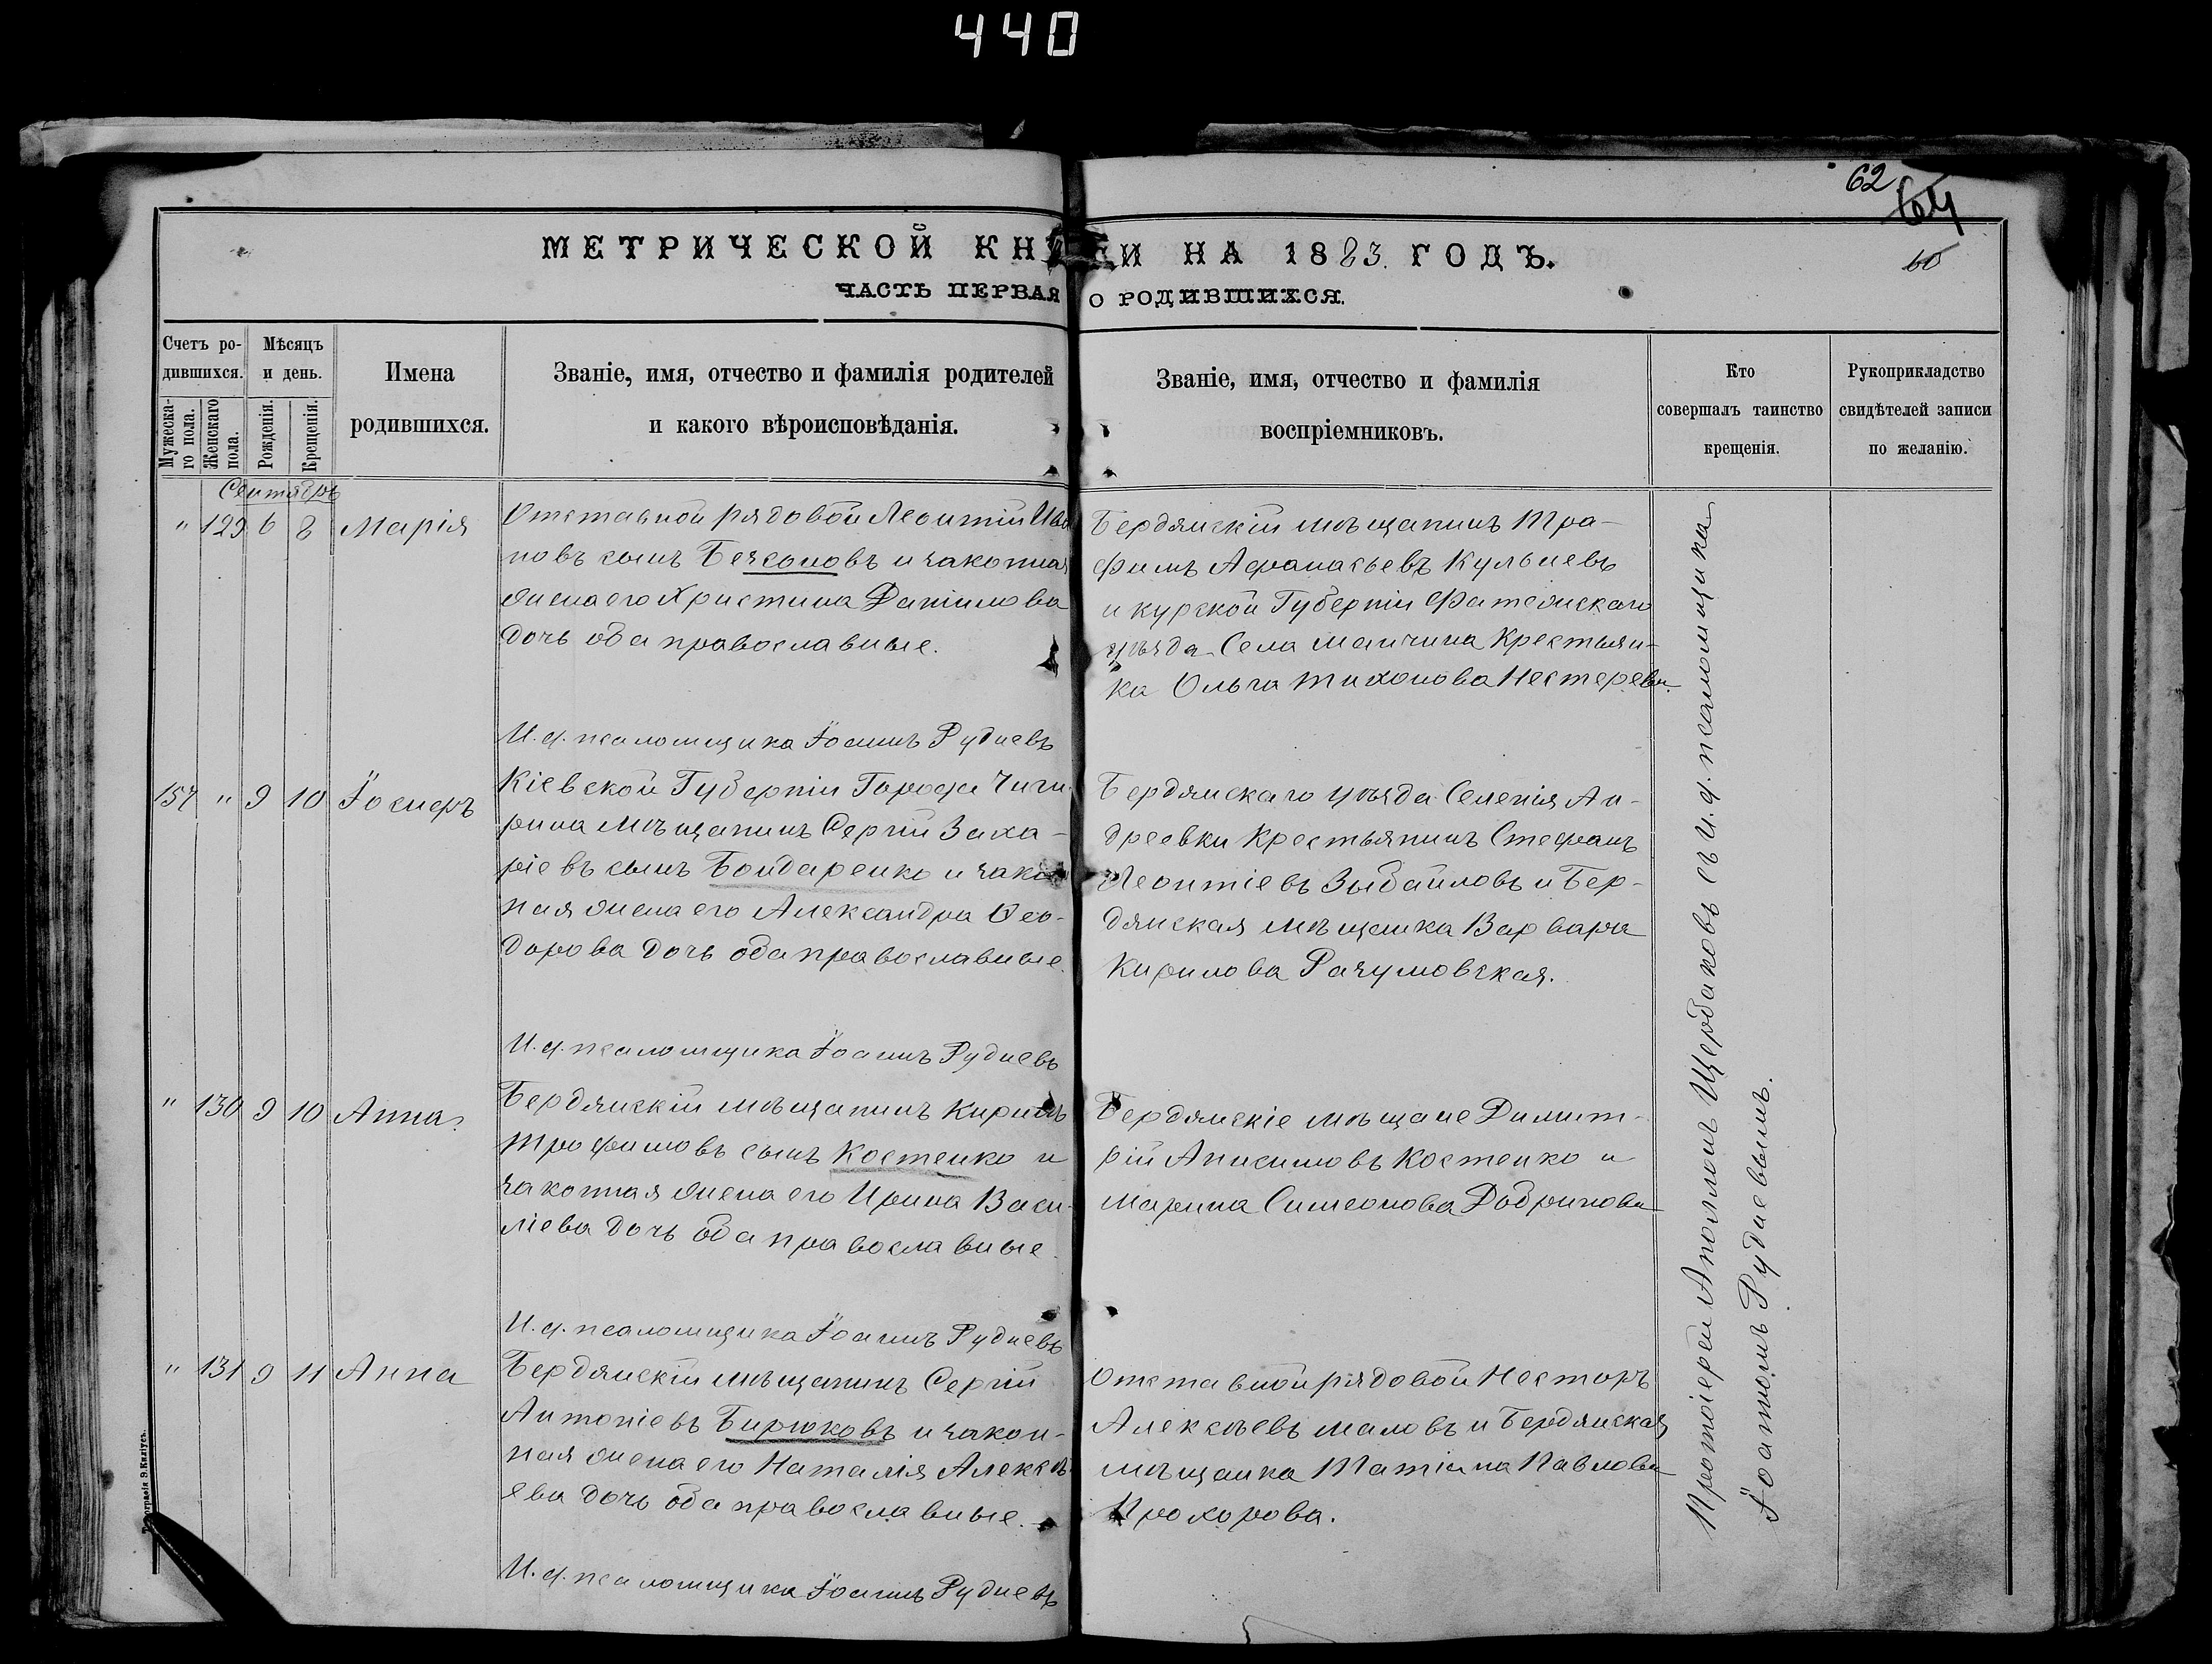 440
62
64
60
МЕТРИЧЕСКОЙ КНИГИ НА 1883. ГОДЪ.
ЧАСТЬ ПЕРВАЯ О РОДИВШИХСЯ.
Счетъ ро-
дившихся.
Мужеска-
го пола.
Женскаго
пола.
Мѣсяцъ
и день.
Рожденія.
Крещенія.
Имена
родившихся.
Званіе, имя, отчество и фамилія родителей
и какого вѣроисповѣданія.
Званіе, имя, отчество и фамилія
воспріемниковъ.
Кто
совершалъ таинство
крещенія.
Рукоприкладство
свидѣтелей записи
по желанію.
Сентябрь
" 129 6 8 Марія
Отставной рядовой Леонтій Ива
новъ сынъ Безсоновъ и законная
жена его Христина Данiилова
дочь оба православные.
И. д. псаломщика Іоаннъ Рудневъ
Бердянскій мѣщанинъ Тро-
фимъ Афанасьевъ Кульневъ
и Курской Губерніи Фатежскаго
уѣзда Села Крестьян-
ка Ольга Тихонова Нестерева.
157 " 9 10 Іосифъ
Кіевской Губерніи Города Чиги-
рина мѣщанинъ Сергій Заха-
ріевъ сынъ Бондаренко и закон
ная жена его Александра Ѳео-
дорова дочь оба православные.
И. д. псаломщика Іоаннъ Рудневъ
Бердянскаго уѣзда Селенія Ан-
дреевки Крестьянинъ Стефанъ
Леонтіевъ Зыбайловъ и Бер-
дянская мѣщанка Варвара
Кирилова Разумовская.
" 130 9 10 Анна.
Бердянскій мѣщанинъ Кирилъ
Трофимовъ сынъ Костенко и
законная жена его Ирина Васи-
ліева дочь оба православные.
И. д. псаломщика Іоаннъ Рудневъ
Бердянскіе мѣщане Димит-
рій Анисимовъ Костенко и
Марина Симеонова Добринова
" 131 9 11 Анна
Бердянскій мѣщанинъ Сергій
Антоніевъ Бирюковъ и закон-
ная жена его Наталія Алексѣ-
ева дочь оба православные.
И. д. псаломщика Іоаннъ Рудневъ
Отставной рядовой Несторъ
Алексѣевъ Маловъ и Бердянская
мѣщанка Татіана Павлова
Прохорова.
Протоіерей Аполлонъ Щербаковъ съ И. д. псаломщика
Іоанномъ Рудневымъ.